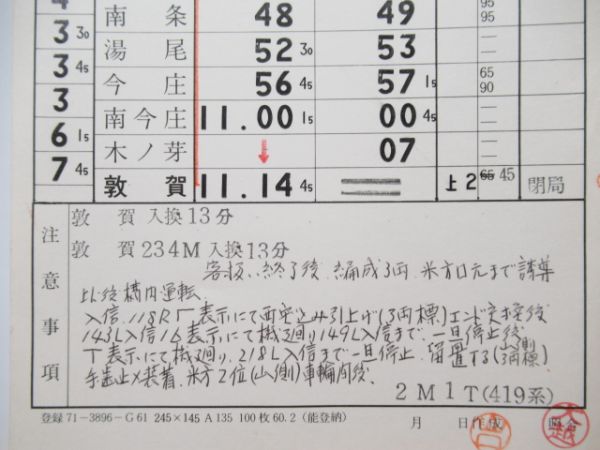 4 南条 48 49 95 95
3 30 湯尾 52 30 53
3 45 今庄 56 45 57 15 65 90
3 南今庄 11.00 15 00 45
6 15 木ノ芽 ↓ 07
7 45 敦賀 11.14 45 上2 65 45 閉局
注意事項
敦賀 入換13分
敦賀 234M 入換13分
客扱い終了後 編成3両 米方口元まで誘導
比後構内運転
入信 118R 表示にて
引上げ(3両標)エンド交換后
143L入信16表示にて機3廻り149L入信まで 一旦停止后
表示にて機3廻り 218L入信まで一旦停止 留置する(3両標)
手歯止メ装着 米方2位(山側)車輪
2M1T(419系)
登録71-3896-G61 245×145 A135 100枚 60.2 (能登納) 月 日作成